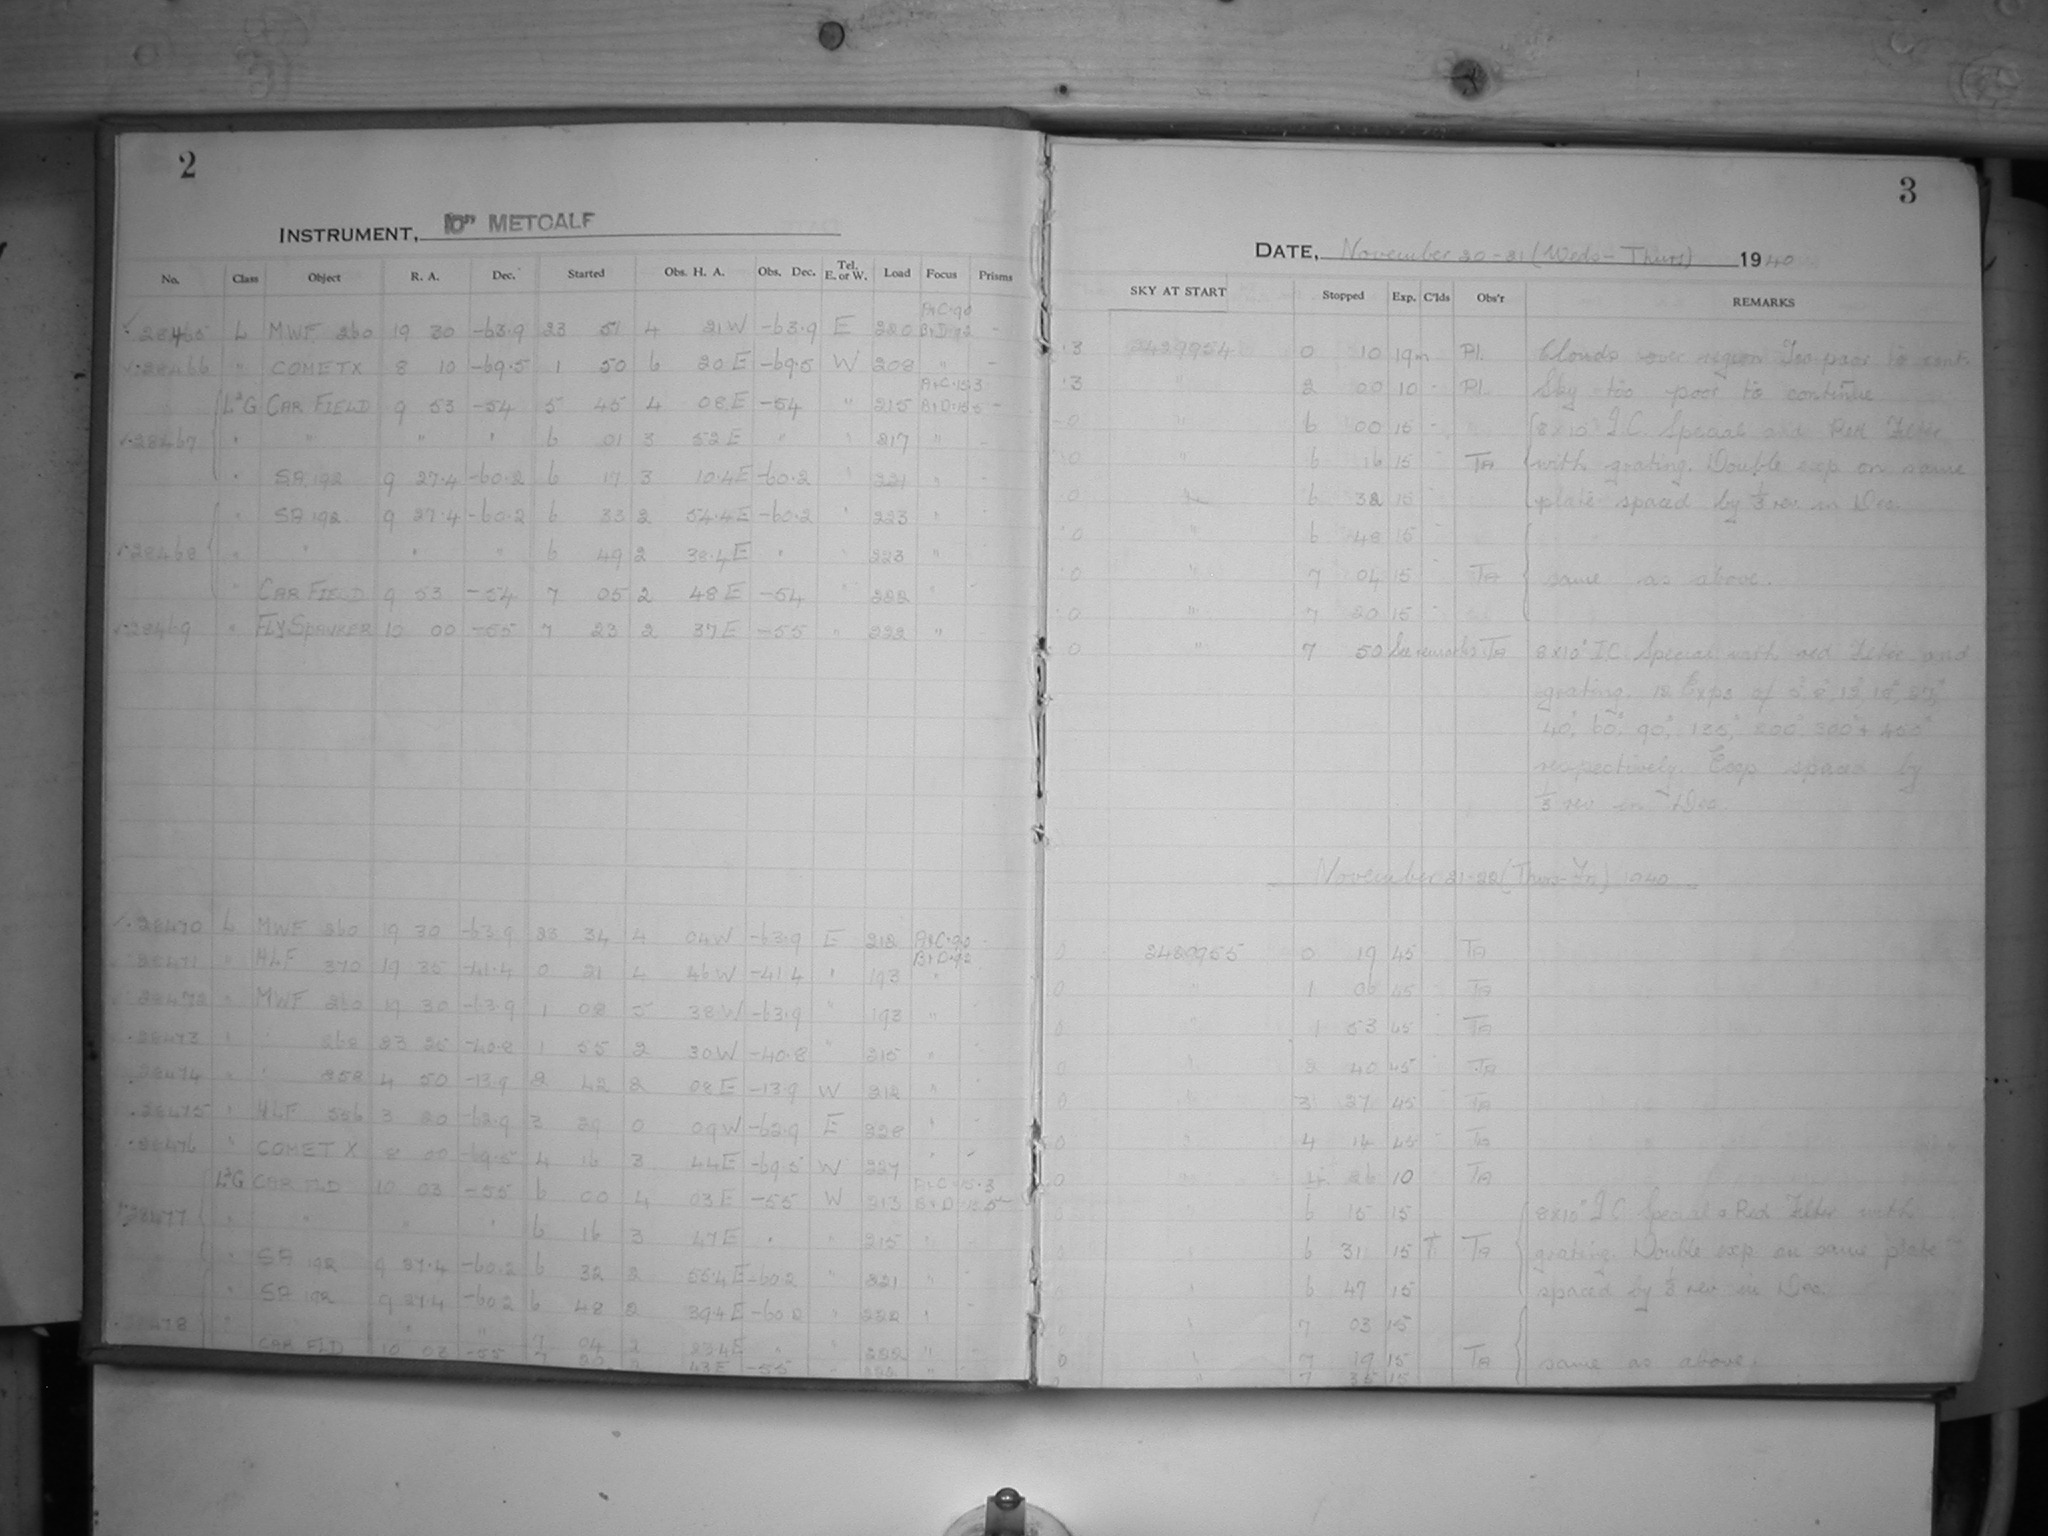 2
INSTRUMENT, 10" METCALF
No. Class Object R. A. Dec. Started Obs. H. A. Obs. Dec. Tel. E. or W. Load Focus Prisms
A+C·90
28465 L MWF 260 19 30 -63·9 23 51 4 21W -63·9 E 220 B+D·92 -
28466 " COMET X 8 10 -69·5 1 50 6 20E -69·5 W 208 " -
A+C·15·3
L³G CAR FIELD 9 53 -54 5 45 4 08E -54 " 215 B+D·15·5
28467 " " " " 6 01 3 52E " " 217 " -
" SA 192 9 27·4 -60·2 6 17 3 10·4E -60·2 " 221 "
" SA 192 9 27·4 -60·2 6 33 2 54·4E -60·2 " 223 "
28468 " " " " 6 49 2 38·4E " " 223 "
" CAR FIELD 9 53 -54 7 05 2 48E -54 " 222 "
28469 " FLY SPANKER 10 00 -55 7 23 2 37E -55 " 222 "
28470 L MWF 260 19 30 -63·9 23 34 4 04W -63·9 E 212 A+C·90
B+D·92
28471 " HLF 370 19 35 -41·4 0 21 4 46W -41·4 " 193 "
28472 " MWF 260 19 30 -63·9 1 08 5 38W -63·9 " 193 "
28473 " " 268 23 25 -40·8 1 55 2 30W -40·8 " 215 "
28474 " " 258 4 50 -13·9 2 42 2 08E -13·9 W 212 "
28475 " HLF 556 3 20 -62·9 3 29 0 09W -62·9 E 228 "
28476 " COMET X 8 00 -69·5 4 16 3 44E -69·5 W 227 "
A+C·15·3
L³G CAR FLD 10 03 -55 6 00 4 03E -55 W 213 B+D·15·5
28477 " " " " 6 16 3 47E " " 215 "
" SA 192 9 27·4 -60·2 6 32 2 55·4E -60·2 " 221 "
" SA 192 9 27·4 -60·2 6 48 2 39·4E -60·2 " 222 "
28478 " " " " 7 04 2 23·4E " " 222 "
CAR FLD 10 03 -55 7 20 2 43E -55 " 222 "
3
DATE, November 20-21 (Weds-Thurs) 1940
SKY AT START Stopped Exp. C'lds Obs'r REMARKS
·3 2429954 0 10 19m Pl. Clouds over region Too poor to cont.
·3 " 2 00 10 Pl. Sky too poor to continue
0 " 6 00 15 " 8x10" I.C. Special and Red Filter
0 " 6 16 15 TA with grating. Double exp on same
0 6 32 15 plate spaced by 1/3 rev in Dec.
0 " 6 48 15
0 " 7 04 15 TA same as above.
0 " 7 20 15
0 " 7 50 See remarks TA 8x10" I.C. Special with red filter and
grating. 12 Exps of 5ˢ, 8ˢ, 12ˢ, 18ˢ, 27ˢ,
40ˢ, 60ˢ, 90ˢ, 135ˢ, 200ˢ, 300ˢ + 450ˢ
respectively. Exp spaced by
1/3 rev in Dec.
November 21-22 (Thurs-Fri) 1940
0 2429955 0 19 45 TA
0 " 1 06 45 TA
0 " 1 53 45 TA
0 " 2 40 45 TA
0 " 3 27 45 TA
0 " 4 14 45 TA
0 " 4 26 10 TA
0 " 6 15 15 8x10" I.C. Special & Red Filter with
0 " 6 31 15 T TA grating. Double exp on same plate
0 " 6 47 15 spaced by 1/3 rev in Dec.
0 " 7 03 15
0 " 7 19 15 TA same as above.
0 " 7 35 15